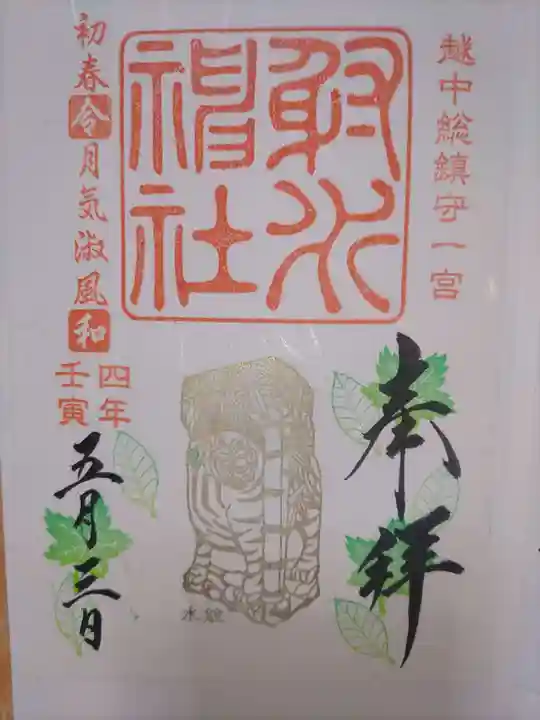 越中総鎮守一宮
奉拝
射水
神社
初春令月気淑風和
四年
壬寅
五月三日